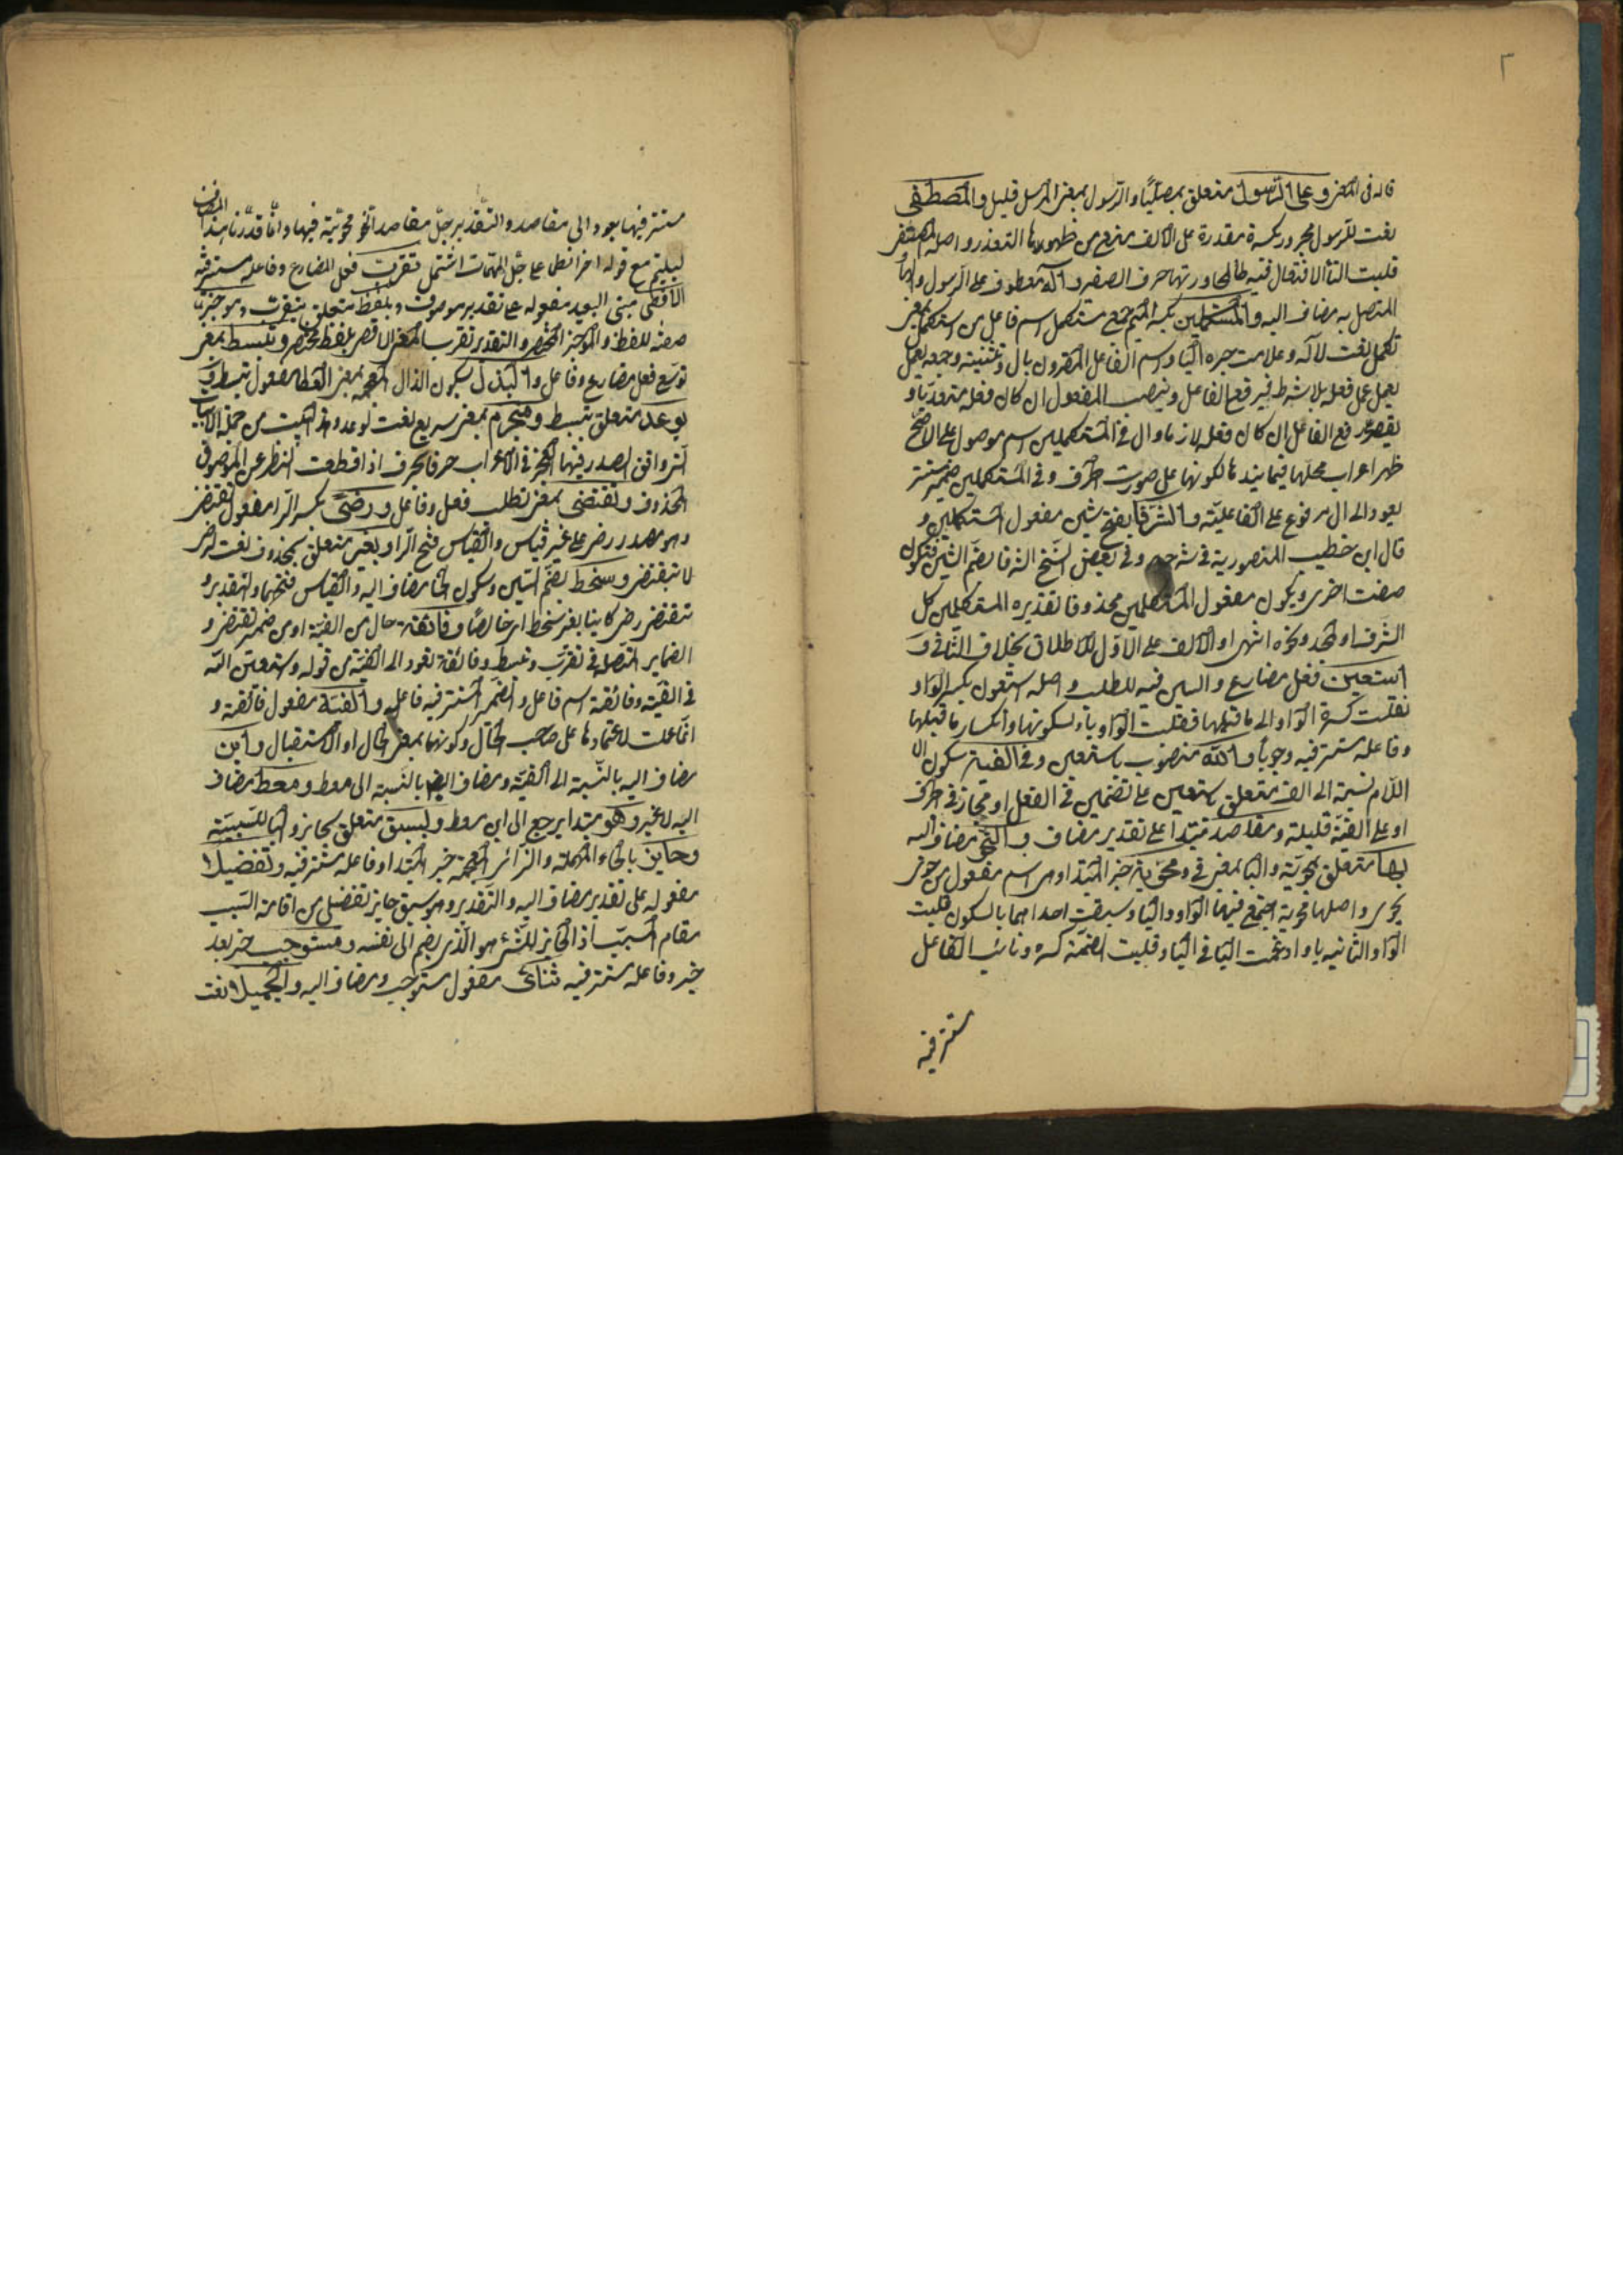 ٢
قاله فى المغنى وعلى الرسول متعلق بمصليًا والرسول بمعنى المرسل قليل والمصطفى
نعت للرسول مجرور بكسرة مقدرة على الالف منع من ظهورها التعذر واصله المصتفى
قلبت التأ الافتعال فيه طا لمجاورتها حرف الصفير وآله معطوف على الرسول والهأ
المتصل به مضاف اليه والمستكملين بكسر الميم جمع مستكمل اسم فاعل من استكمل بمعنى
تكمل نعت لآله وعلامت جره اليا واسم الفاعل المقرون بال وتثنيته وجمعه يعمل
يعمل عمل فعله بلا شرط فيرفع الفاعل وينصب المفعول ان كان فعله متعديا و
يقصر على رفع الفاعل ان كان فعله لازما وال فى المستكملين اسم موصول على الاصح
ظهر اعراب محلها فيما بعدها لكونها على صورت الحرف وفى المستكملين ضمير مستتر
يعود الى ال مرفوع على الفاعلية والشرفا بفتح شين مفعول المستكملين و
قال ابن خطيب المنصورية فى شرحه وفى بعض النسخ الشرفا بضم الشين فتكون
صفت اخرى ويكون مفعول المستكملين محذوفا تقديره المستكملين كل
الشرف او المجد ونحوه انتهى او الالف على الاول للاطلاق بخلاف الثانى و
استعين فعل مضارع والسين فيه للطلب واصله استعون بكسر الواو
نقلت كسرة الواو الى ما قبلها فقلبت الواو ياء لسكونها وانكسار ما قبلها
وفاعله مستتر فيه وجوبا والله منصوب باستعين وفى الفيه بسكون الا
اللام نسبة الى الف متعلق باستعين على تضمين فى الفعل او مجاز فى الحرف
او على الفية قليلة ومقاصد مبتدا على تقدير مضاف والنحو مضاف اليه
بها متعلق بمحوية والبا بمعنى فى ومحوية خبر المبتدا وهى اسم مفعول من حوى
يحوى واصلها محوية اجتمع فيها الواو والياء وسبقت احداهما بالسكون قلبت
الواو الثانيه يا وادغمت اليا فى اليا وقلبت الضمة كسره ونائب الفاعل
مستتر فيه
مستتر فيها يعود الى مقاصد والتقدير جل مقاصد النحو محوية فيها وانما قدرنا هذا المضاف
ليلتئم مع قوله اخرا نظما على جل المهمات اشتمل تقرب فعل المضارع وفاعله مستتر فيه
الاقصى بمعنى البعيد مفعوله على تقدير موصوف وبلفظ متعلق بتقرب وموجز
صفة للفظ والموجز المختصر والتقدير تقرب المعنى الاقصى بلفظ مختصر وتبسط بمعنى
توسع فعل مضارع وفاعل والبذل بسكون الذال المعجمه بمعنى العطا مفعول تبسط و
بوعد متعلق بتبسط ومنجز بمعنى سريع نعت لوعد وهذا البيت من جملة الابيات
التى وافق الصدر فيها العجز فى الاعراب حرفا بحرف اذا قطعت النظر عن الموصوف
المحذوف وتقتضى بمعنى تطلب فعل وفاعل ورضى بكسر الرا مفعول تقتضى
وهو مصدر رضى على غير قياس والقياس فتح الرا وبغير متعلق بمحذوف نعت لرضى
لا بتقتضى وسخط بضم السين وسكون الخا مضاف اليه والقياس فتحهما والتقدير و
تقتضى رضى كاينا بغير سخط اى خالصًا وفائقة حال من الفية او من ضمير تقتضى و
الضماير المتصله فى تقرب وتبسط وفائقة تعود الى الفية من قوله واستعين الله
فى الفية وفائقة اسم فاعل والضمير المستتر فيه فاعله والفية مفعول فائقة و
انما عملت لاعتمادها على صاحب الحال وكونها بمعنى الحال او الاستقبال وابن
مضاف اليه بالنسبة الى الفية ومضاف ايضا بالنسبة الى معط ومعط مضاف
اليه لاغير وهو مبتدا يرجع الى ابن معط وبسبق متعلق بحائز والبا للسببية
وحايز بالحاء المهملة والزائر المعجمه خبر المبتدا وفاعله مستتر فيه وتفضيلا
مفعوله على تقدير مضاف اليه والتقدير وهو بسبق حايز تفضيلى من اقامة السبب
مقام المسبب اذ الحايز للشئ هو الذى يضم الى نفسه ومستوجب خبر بعد
خبر وفاعله مستتر فيه ثنائى مفعول مستوجب ومضاف اليه والجميلا نعت